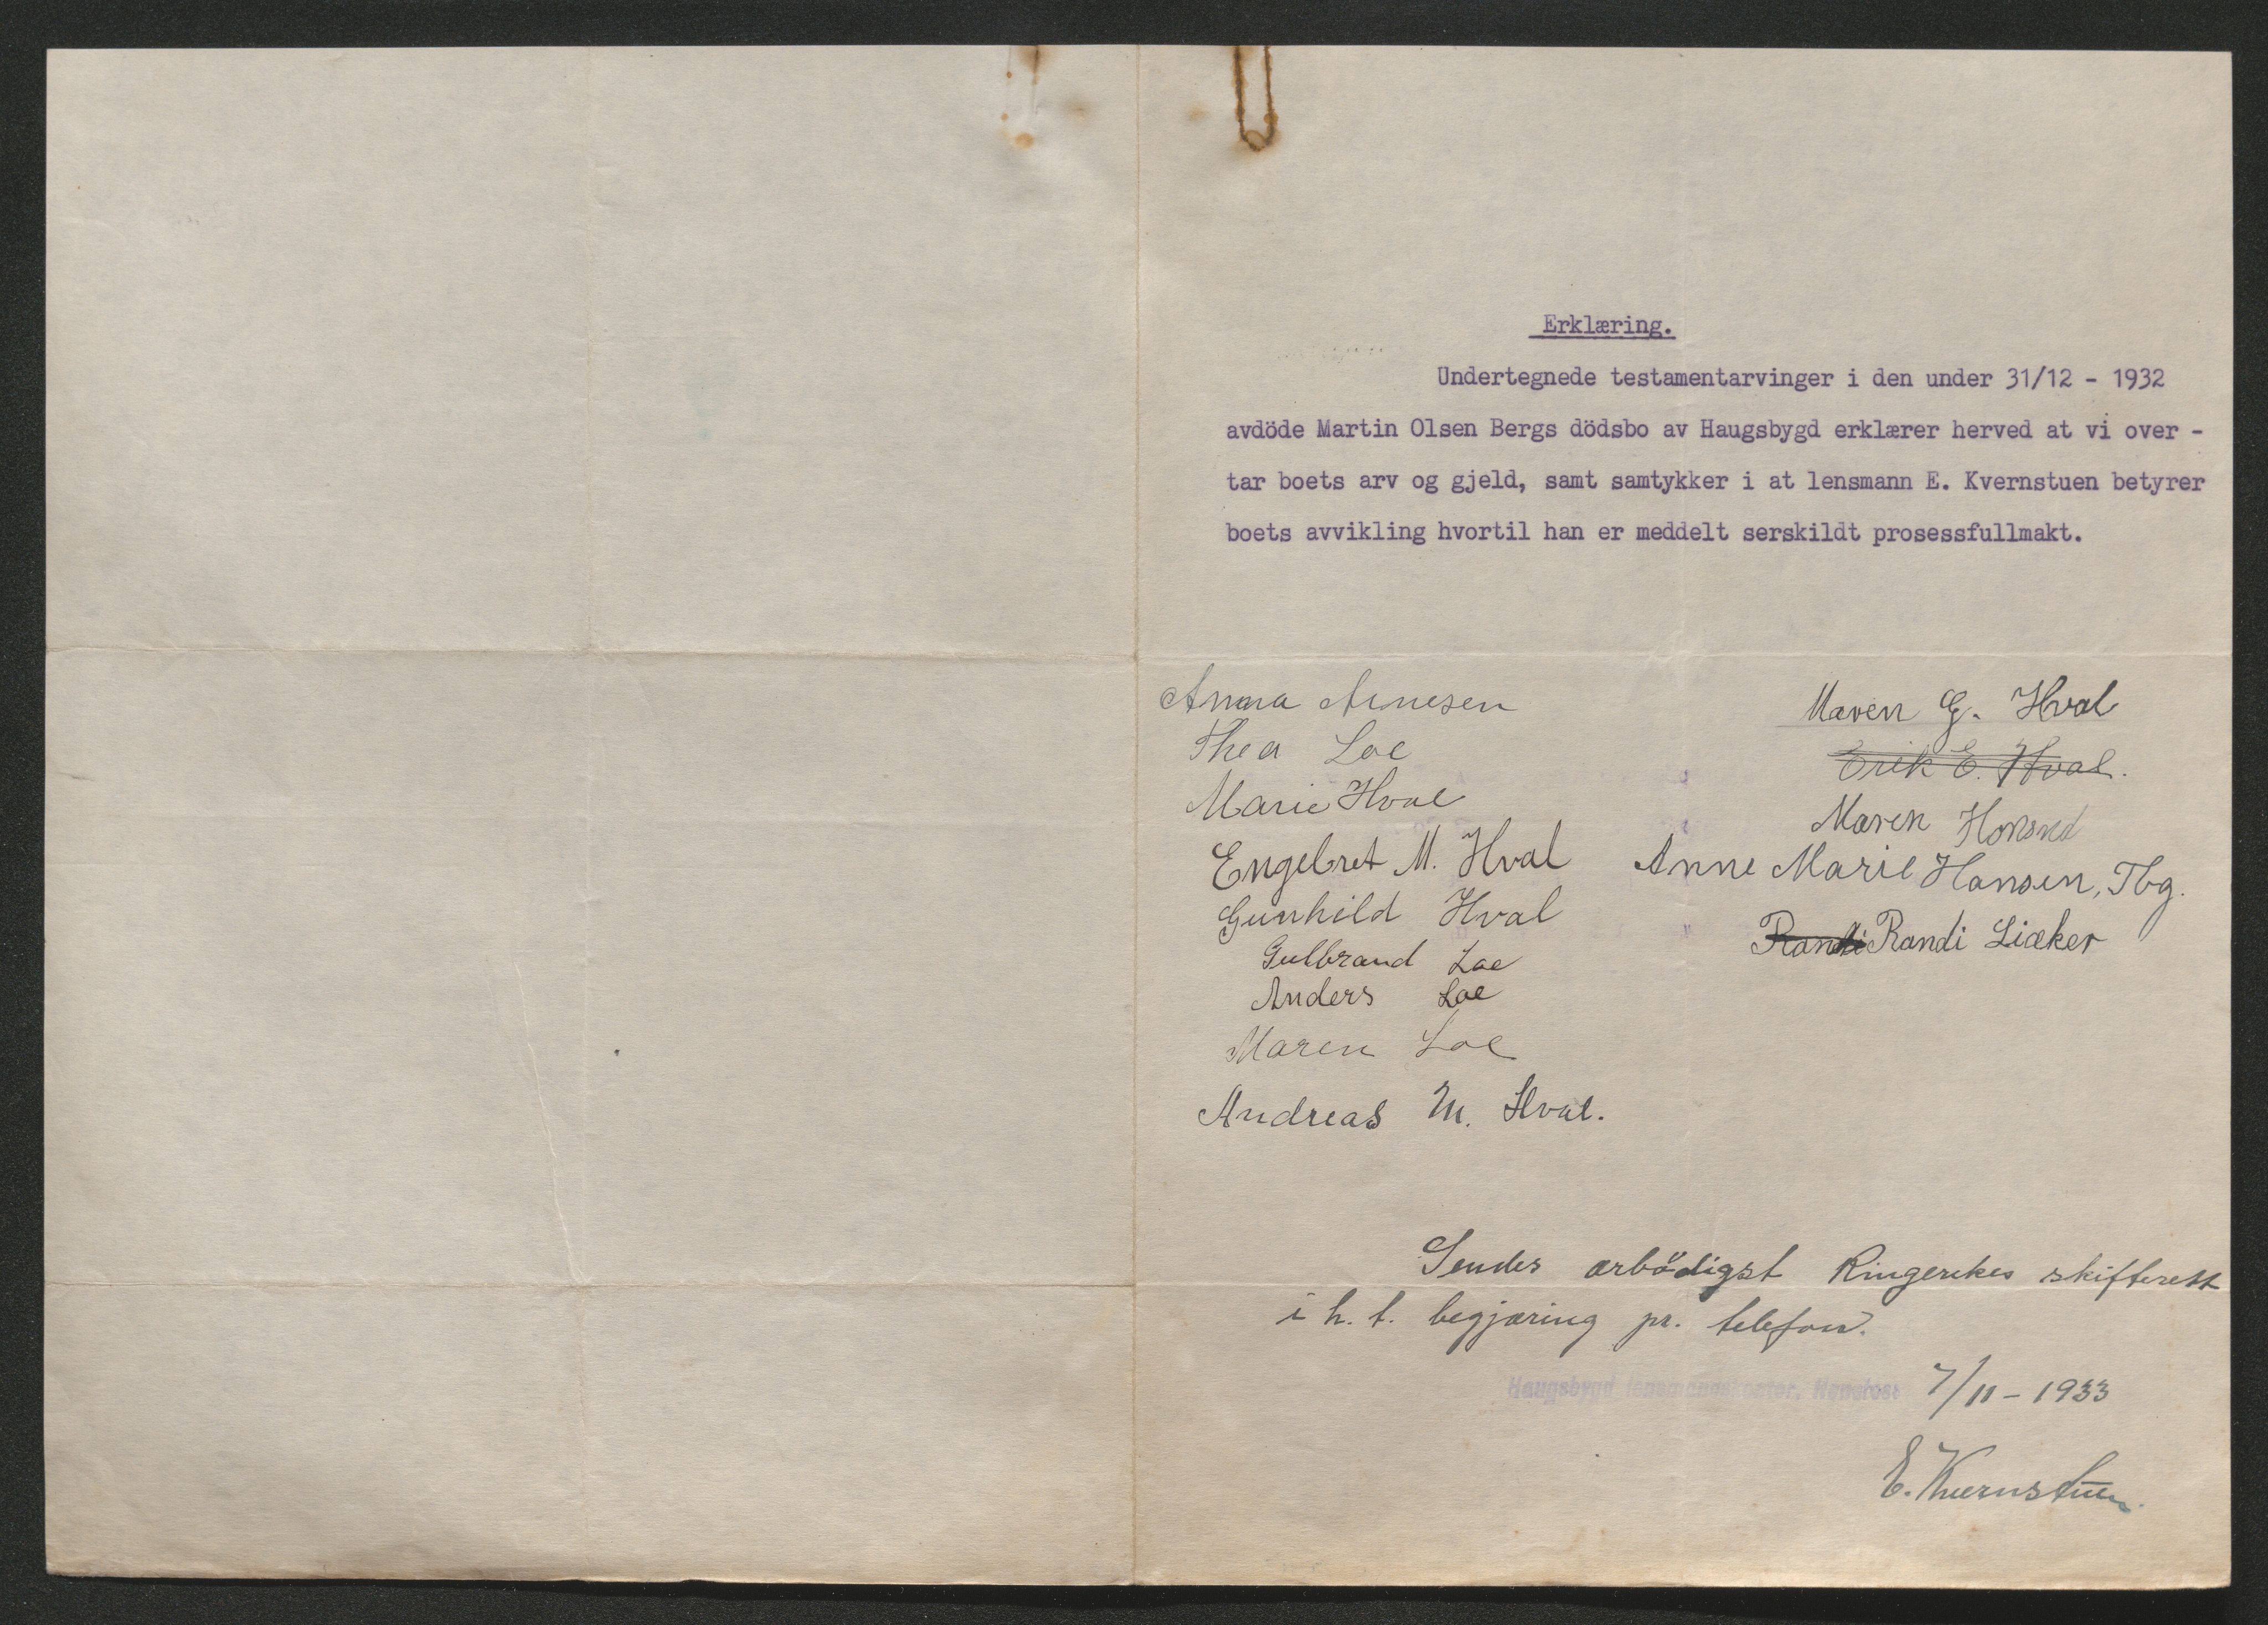 Erklæring.
Undertegnede testamentarvinger i den under 31/12 - 1932
avdöde Martin Olsen Bergs dödsbo av Haugsbygd erklærer herved at vi over -
tar boets arv og gjeld, samt samtykker i at lensmann E. Kvernstuen betyrer
boets avvikling hvortil han er meddelt serskildt prosessfullmakt.
Anna Arnesen
Thea Loe
Marie Hval
Engebret M. Hval
Gunhild Hval
Gulbrand Loe
Anders Loe
Maren Loe
Andreas M. Hval.
Maren G. Hval
Erik E. Hval.
Maren
Anne Marie Hansen, Tbg.
Randi Randi Liæker
Sendes ærbödigst Ringerikes skifterett
i h. t. begjæring pr. telefon.
Haugsbygd lensmannskontor, Hønefoss 7/11 - 1933
E. Kvernstuen.